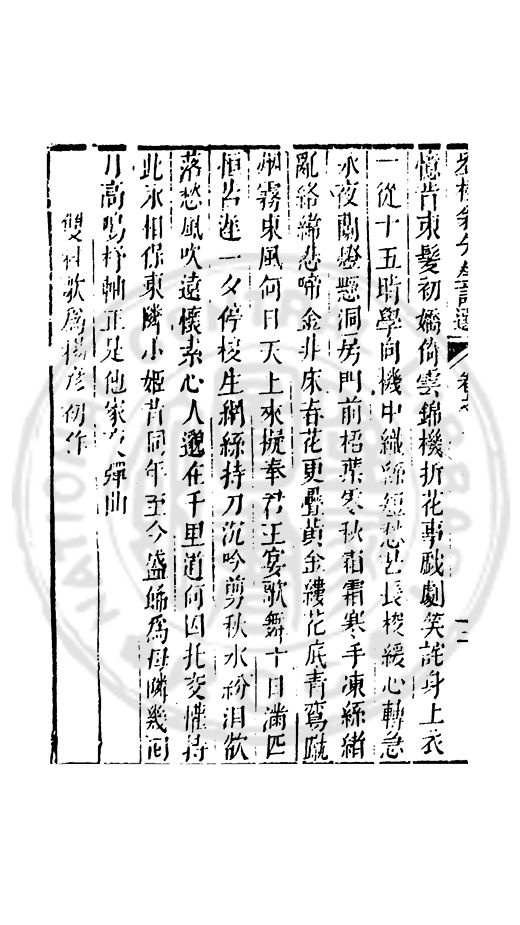 憶昔束髮初嬌倚雲錦機折花事戲劇笑詫身上衣
一從十五時學向機中織絲短愁長梭緩心轉急
永夜蘭燈懸洞房門前梧葉零秋霜霜寒手凍絲緒
亂絡緯悲啼金井床春花更疊黃金縷花底青鸞蹴
烟霧東風何日天上來挽奉君王宴歌舞十日滿匹
恒苦遲一夕停梭生網絲持刀沉吟剪秋水紛泪欲
落愁風吹遠懷素心人邈在千里道何因托交懽持
此永相保東隣小姬昔同年至今盛飾為母隣幾
月高鳴杼軸正是他家夜彈曲
雙村歌為楊彥初作